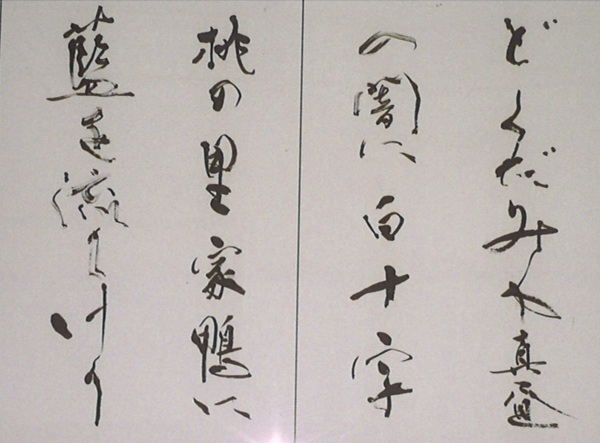 どくだみや真昼
の闇に白十字
桃の里家鴨に
藍を流しけり